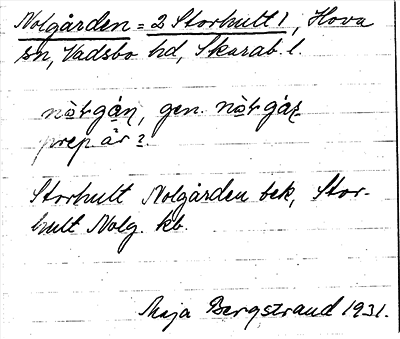 Nolgården = 2 Storhult 1, Hova
sn, Vadsbo hd, Skarab. l.
nò̀ɫgáṇ, gen. nò̀ɫgáz
prep är i.
Storhult Nolgården bek, Stor-
hult Nolg. kb.
Maja Bergstrand 1931.